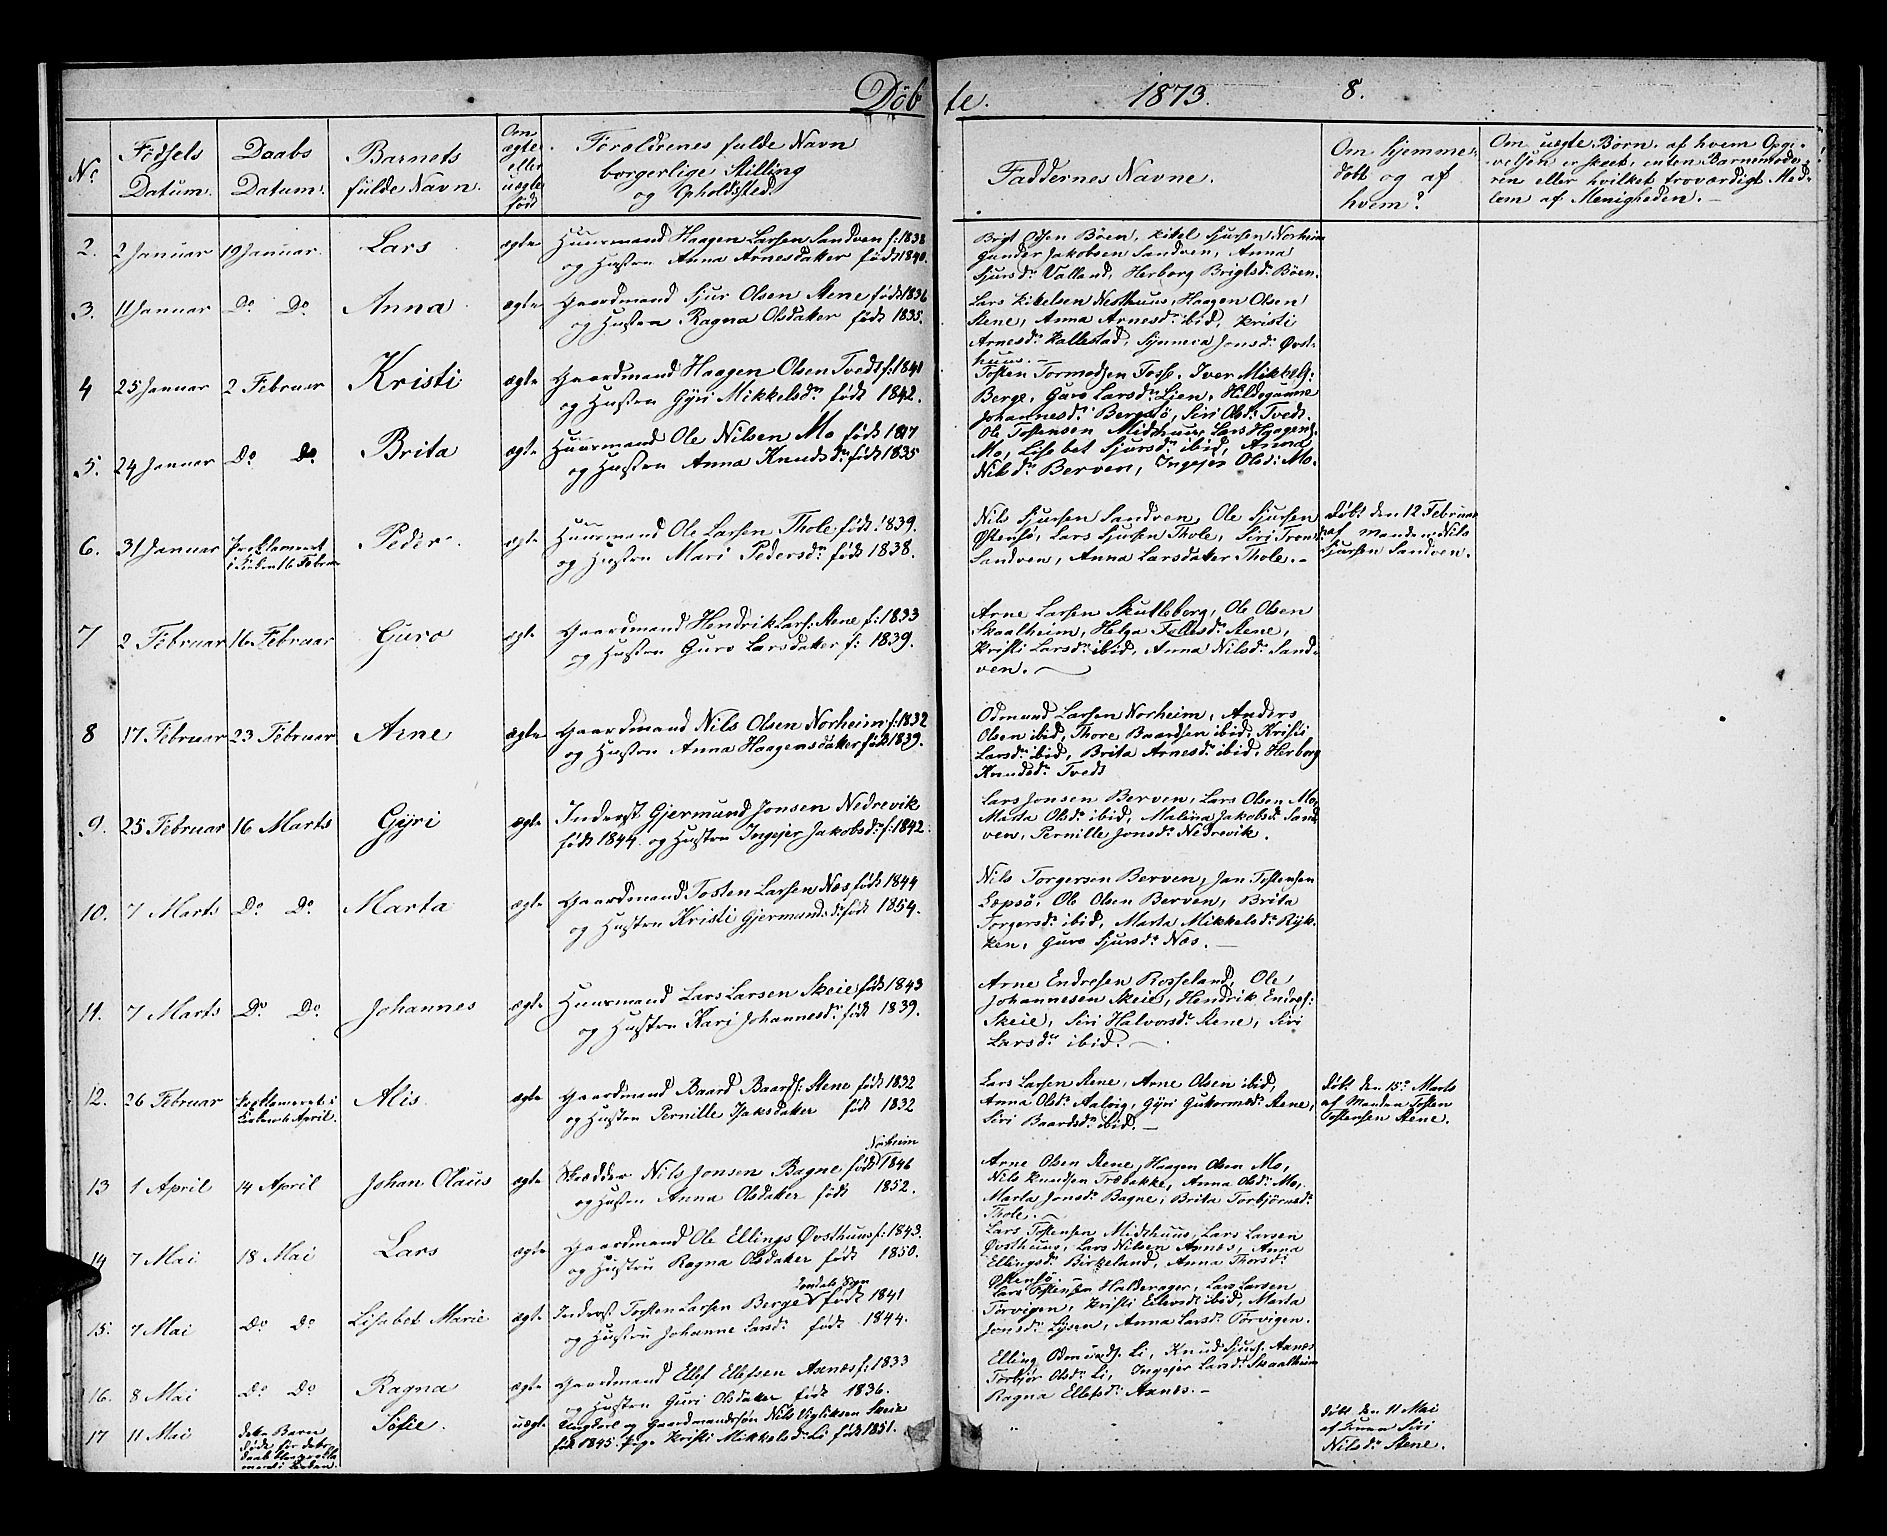 Döbte. 1873. 8.
No
Födsels Datum.
Daabs Datum.
Barnets fulde Navn.
Om ægte eller uægte födt
Forældrenes fulde Navn borgerlige Stilling og Opholdssted.
Faddernes Navne.
Om hjemmedöbt og af hvem?
Om uegte Börn, af hvem Opgivelsen er skeet, enten Barnemoderen eller hvilket troværdigt Medlem af Menigheden. —
2. 2 Januar 19 Januar. Lars ægte Huusmand Haagen Larsen Sandven f: 1838
og Hustru Anna Arnesdatter födt 1840.
Brigt Olsen Böen, Kitel Sjursen Norheim
Gunder Jakobsen Sandven, Anna
Sjursdr Valland, Herborg Brigtsdr Böen.
3. 11 Januar Do Do Anna ægte Gaardmand Sjur Olsen Stene födt 1836
og Hustru Ragna Olsdatter födt 1835.
Lars Kitelsen Nesthuus, Haagen Olsen
Stene, Anna Arnesdr ibid, Kristi
Arnesdr Kallestad, Synneva Jonsdr Övst-
huus. —
4 25 Januar 2 Februar Kristi ægte Gaardmand Haagen Olsen Tvedt f: 1841
og Hustru Gÿri Mikkelsdr födt 1842.
Tosten Tormodsen Fosse, Iver Mikkels:
Berge, Guro Larsdr Lien, Hildegunne
Johannesdr Bergstö, Siri Olsdr Tvedt.
5. 24 Januar Do Do Brita ægte Huusmand Ole Nilsen Mo födt 1817
og Hustru Anna Knudsdr födt 1835
Ole Tostensen Midthuus, Lars Haagens:
Mo, Lisabet Sjursdr ibid, Anna
Nilsdr Berven, Ingejer Olsdr Mo.
6. 31 Januar Proklameret
i Kirken 16 Februar Peder ægte Huusmand Ole Larsen Thole födt 1839.
og Hustru Mari Pedersdr födt 1838.
Nils Sjursen Sandven, Ole Sjursen
Östensö, Lars Sjursen Thole, Siri Tronds
Sandven, Anna Larsdatter Thole. —
Döbt den 12 Februar
af Manden Nils
Sjursen Sandven.
7 2 Februar 16 Februar Guro ægte Gaardmand Hendrik Lars: Stene f: 1833
og Hustru Guro Larsdatter f: 1839.
Arne Larsen Skutleborg, Ole Olsen
Skaalheim, Helga Tollesdr Stene,
Kristi Larsdr ibid, Anna Nilsdr Sand-
ven. —
8 17 Februar 23 Februar Arne ægte Gaardmand Nils Olsen Norheim f: 1832
og Hustru Anna Haagensdatter födt 1839.
Odmund Larsen Norheim, Anders
Olsen ibid, Thore Baardsen ibid, Kristi
Larsdr ibid, Brita Arnesdr ibid, Herborg
Knudsdr Tvedt
9. 25 Februar 16 Marts Gÿri ægte Inderst Gjermund Jonsen Nedrevik
födt 1844. og Hustru Ingejer Jakobsdr f: 1842.
Lars Jonsen Berven, Lars Olsen Mo,
Marta Olsdr ibid, Malina Jakobsdr Sand-
ven, Pernille Jonsdr Nedrevik.
10. 7 Marts Do Do Marta ægte Gaardmand Tosten Larsen Næs födt 1844
og Hustru Kristi Gjermundsdr födt 1854.
Nils Torgersen Berven, Jon Tostensen
Lepsö, Ole Olsen Berven, Brita
Torgersdr ibid, Marta Mikkelsdr Ryk-
ken, Guro Sjursdr Næs. —
11. 7 Marts Do Do Johannes ægte Huusmand Lars Larsen Skeie födt 1843
og Hustru Kari Johannesdr födt 1839.
Arne Endresen Rosseland, Ole
Johannesen Skeie, Hendrik Endres:
Skeie, Siri Halvorsdr Stene, Siri
Larsdr ibid. —
12. 26 Februar Proklameret i
Kirken 14 April. Alis. ægte Gaardmand Baard Baards: Stene födt 1832
og Hustru Pernille Isaksdatter födt 1832
Lars Larsen Stene, Arne Olsen ibid,
Anna Olsdr Aalvig, Gÿri Guttormsdr Stene,
Siri Baardsdr ibid. —
Döbt den 15de Marts
af Manden Tosten
Tostensen Stene.
13 1 April 14 April Johan Olaus ægte Skrædder Nils Jonsen Bagne Norheim födt 1846
og Hustru Anna Olsdatter födt 1852.
Arne Olsen Stene, Haagen Olsen Mo,
Nils Knudsen Træbakke, Anna Olsdr Mo,
Marta Jonsdr Bagne, Brita Torbjörnsdr
Thole. —
14 7 Mai 18 Mai Lars ægte Gaardmand Ole Ellings Övsthuus f: 1843.
og Hustru Ragna Olsdatter födt 1850.
Lars Tostensen Midthuus, Lars Larsen
Övsthuus, Lars Nilsen Axnes, Anna
Ellingsdr Birkeland, Anna Thorsdr
Östensö. —
15. 7 Mai Do Do Lisabet Marie ægte Inderst Torsten Larsen Berge Jondals Sogn födt 1841
og Hustru Johanne Larsdr födt 1844.
Lars Tostensen Halderager, Lars Larsen
Törvigen, Kristi Eilevsdr ibid, Marta
Jonsdr Lÿsen, Anna Larsdr Törvigen.
16. 8 Mai Do Do Ragna ægte Gaardmand Ellef Ellefsen Axnæs f: 1833
og Hustru Guri Olsdatter födt 1836.
Elling Odmunds: Li, Knud Sjurs: Axnæs
Torbjör Olsdr Li, Ingejer Larsdr Skaalheim
Ragna Ellefsdr Axnes. —
17 11 Mai dette Barn
döde för dets
Daab Sofie. uægte Ungkarl og Gaardmandssön Nils Vigliksen Skeie
född 1845. Pige Kristi Mikkelsdr Li födt 1851.
Döbt den 11 Mai
af Konen Siri
Nilsdr Stene.